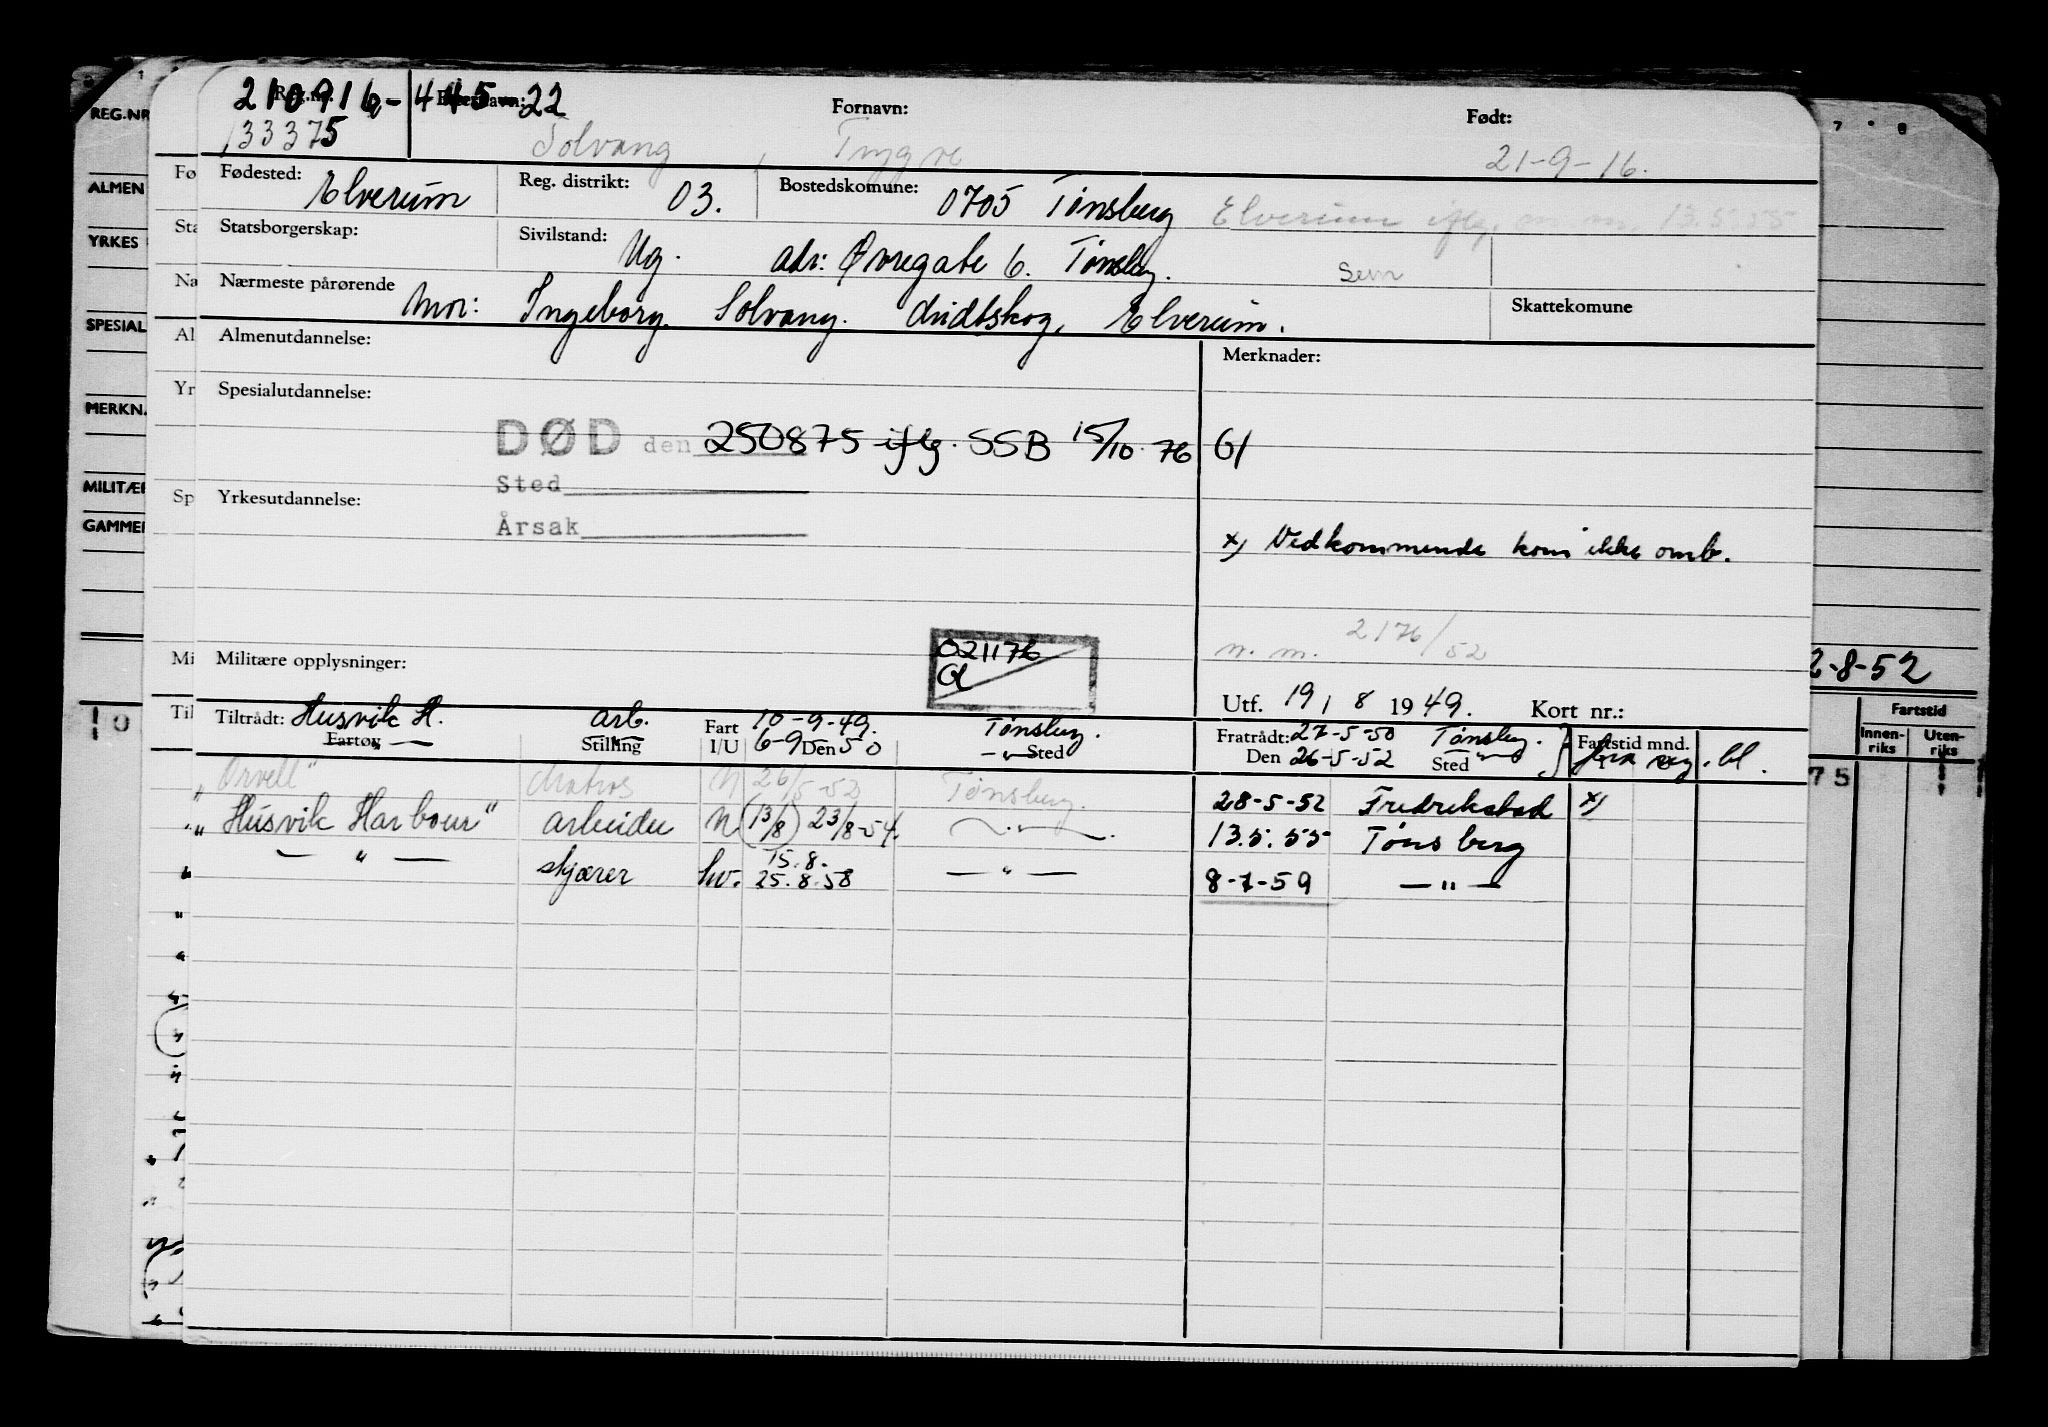 210916-44522
Reg.nr. Etternavn: Fornavn: Født:
133375 Solvang, Trygve 21-9-16.
Fødested: Elverum Reg. distrikt: 03. Bostedskomune: 0705 Tønsberg Elverum iflg. 13.5.55
Statsborgerskap: Sivilstand: Ug. adr: Øvregate 6. Tønsberg. Sem
Nærmeste pårørende Mor: Ingeborg Solvang. Elverum. Skattekomune
Almenutdannelse: Merknader:
Spesialutdannelse:
DØD den 250875 iflg. SSB 15/10 76 Gl
Sted
Yrkesutdannelse: Årsak
x) Vedkommende kom ikke omb.
n. m. 2176/52
Militære opplysninger: 021176 Gl
Utf. 19/8 1949. Kort nr.:
Tiltrådt: Husvik H. arb. Fart 10-9-49. Tønsberg. Fratrådt: 27-5-50 Tønsberg. Fartstid mnd.
Fartøy — Stilling I/U 6-9-50 Den — " — Sted Den 26-5-52 Sted — " —
"Orvell" Matros N 26/5-52 Tønsberg. 28-5-52 Fredrikstad x)
"Husvik Harbour" arbeider N (13/8) 23/8-54. — " — 13.5.55 Tønsberg
— " — skjærer hv. 15.8. 25.8.58 — " — 8-1-59 — " —
REG.NR
ALMEN
YRKES
SPESIAL
MERKN.
MILITÆR
GAMMEL
Fø
Sta
Na
Al
Yr
Sp
Mi
Til
2-8-52
Fartstid
Innenriks Utenriks
75